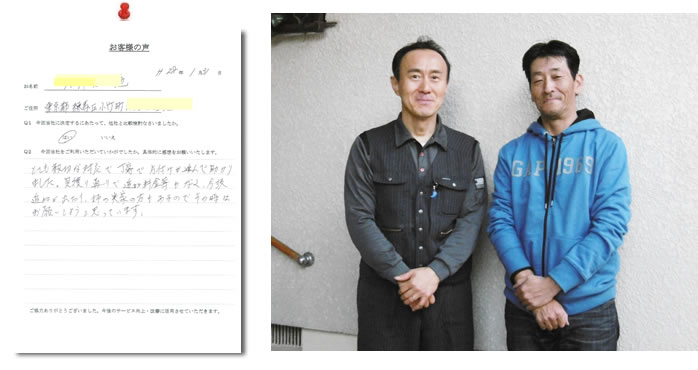 お客様の声
H 28年 1月 日
お名前
ご住所 東京都練馬区小竹町
Q1 今回当社に決定するにあたって、他社と比較検討なさいましたか。
はい いいえ
Q2 今回当社をご利用いただいていかがでしたか。具体的に感想をお願いいたします。
とても親切な対応で丁寧で片付けが進んで助かり
ました。見積り通りで追加料金等もなく、今後
追加があったり、 の実家の方もあるのでその時は
お願いしようと思っています。
ご協力ありがとうございました。今後のサービス向上・改善に活用させていただきます。
GAP 1969